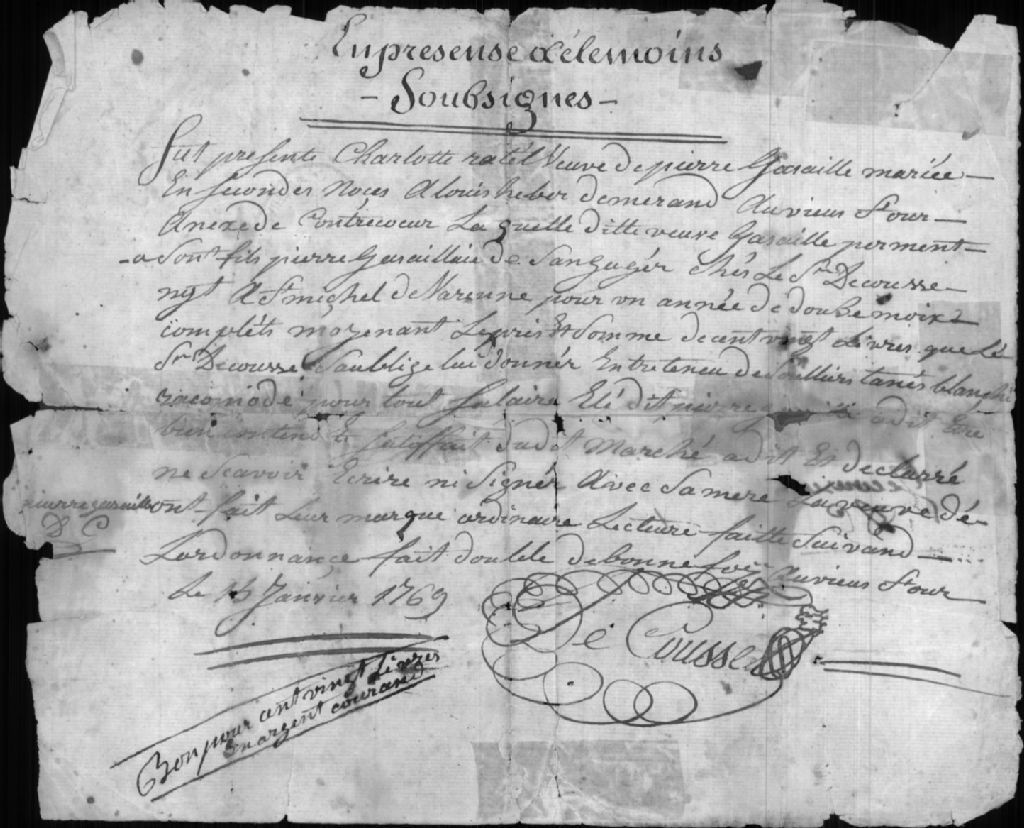 En presense de temoins
- Soubsignes -
Fut presente Charlotte ratel Veuve de pierre Gasaille mariée
En secondes noces A louis hebor demerand Au vieux Four
Anexe de Contrecoeur La quelle ditte veuve Gasaille perment
a Sont fils pierre Gasaillaie de Sangagér chés Le Sr Decousse
ngt A St michel de Varenne pour un année de douhe moix
complèts moyenant Le pris Et Somme de cent vingt Livres que Lé
Sr Decousse Saublige lui donnér Entretenu de Soulliers tanés blanghe
racomodé pour tout Salaire adit Etre
bien contend Et Satiffait dudit Marché adit Et declarré
ne Scavoir Ecrire ni Signér Avec Sa mere
pierre gasaille ont fait Leur marque ordinaire Lecture faitte Suivand
D C
Lordonnance fait double de bonne foi Au vieux Four
Le 15 Janvier 1769
De Cousse
Bon pour cent vingt Livres
En argent courand